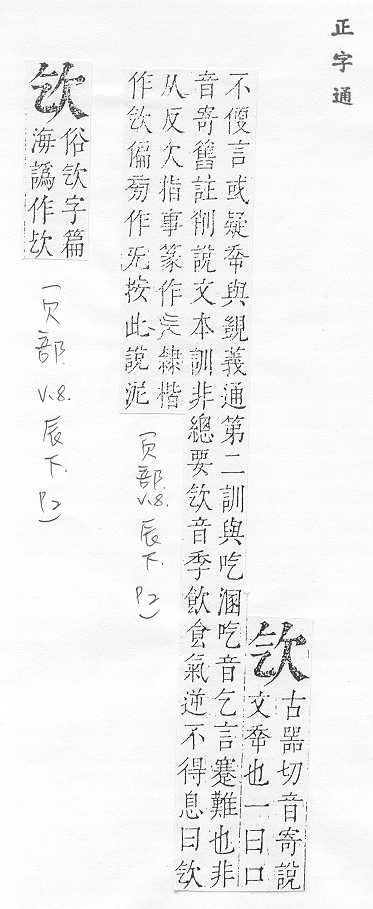 正字通
古器切音寄說
文㚔也一曰口
不便言或疑㚔與覬義通第二訓與吃溷吃音乞言蹇難也非
音寄舊註削說文本訓非總要音季飲食氣逆不得息曰
从反欠指事篆作隸楷
作偏旁作旡按此說泥
(欠部 v.8. 辰下. P2)
俗字篇
海譌作
(欠部 v.8. 辰下. P2)